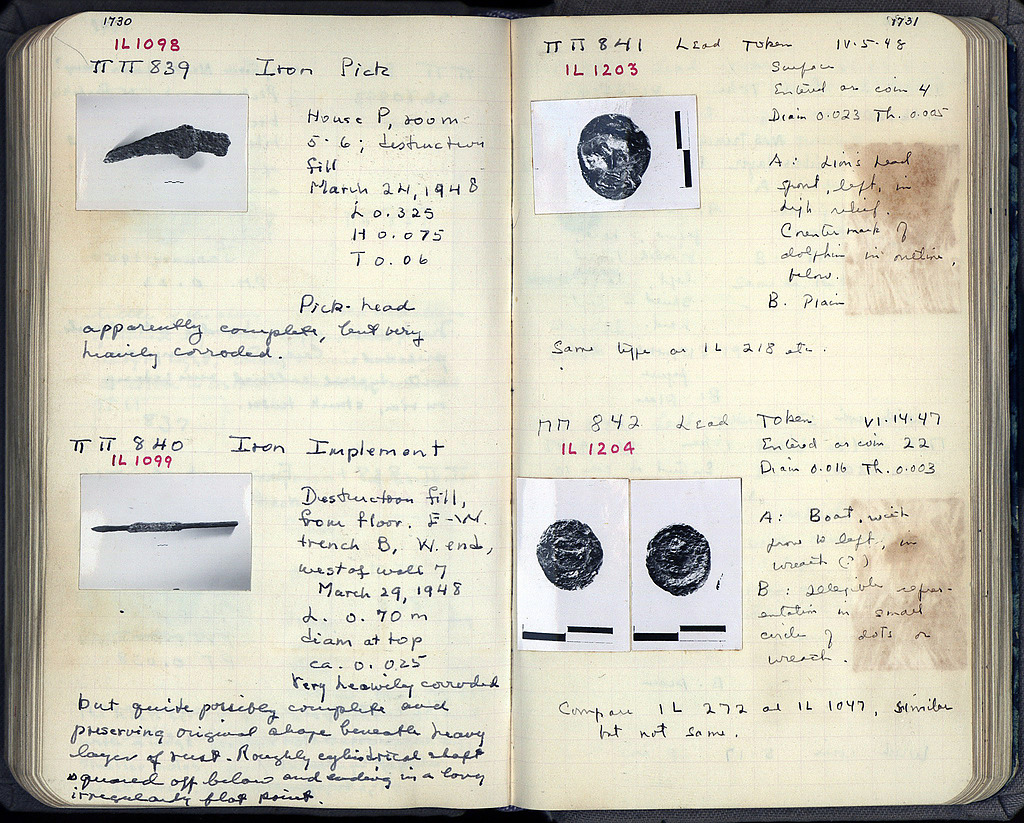 1730
IL 1098
ΠΠ 839 Iron Pick
House P, room
5-6; destruction
fill
March 24, 1948
L 0.325
H 0.075
T 0.06
Pick-head
apparently complete, but very
heavily corroded.
ΠΠ 840 Iron Implement
IL 1099
Destruction fill,
from floor. E-W.
trench B, W. end,
west of wall 7
March 29, 1948
L. 0.70 m
diam at top
ca. 0.025
Very heavily corroded
but quite possibly complete and
preserving original shape beneath heavy
layer of rust. Roughly cylindrical shaft
squared off below and ending in a long
irregularly flat point.
1731
ΠΠ 841 Lead Token IV·5·48
IL 1203
Surface
Entered as coin 4
Diam 0.023 Th. 0.005
A: Lion's head
spout, left, in
high relief.
Countermark of
dolphin in outline,
below.
B. Plain
Same type as IL 218 etc.
ΠΠ 842 Lead Token VI·14·47
IL 1204
Entered as coin 22
Diam 0.016 Th. 0.003
A: Boat, with
prow to left, in
wreath (?)
B: Illegible repres-
entation in small
circle of dots or
wreath.
Compare IL 272 and IL 1047, similar
but not same.